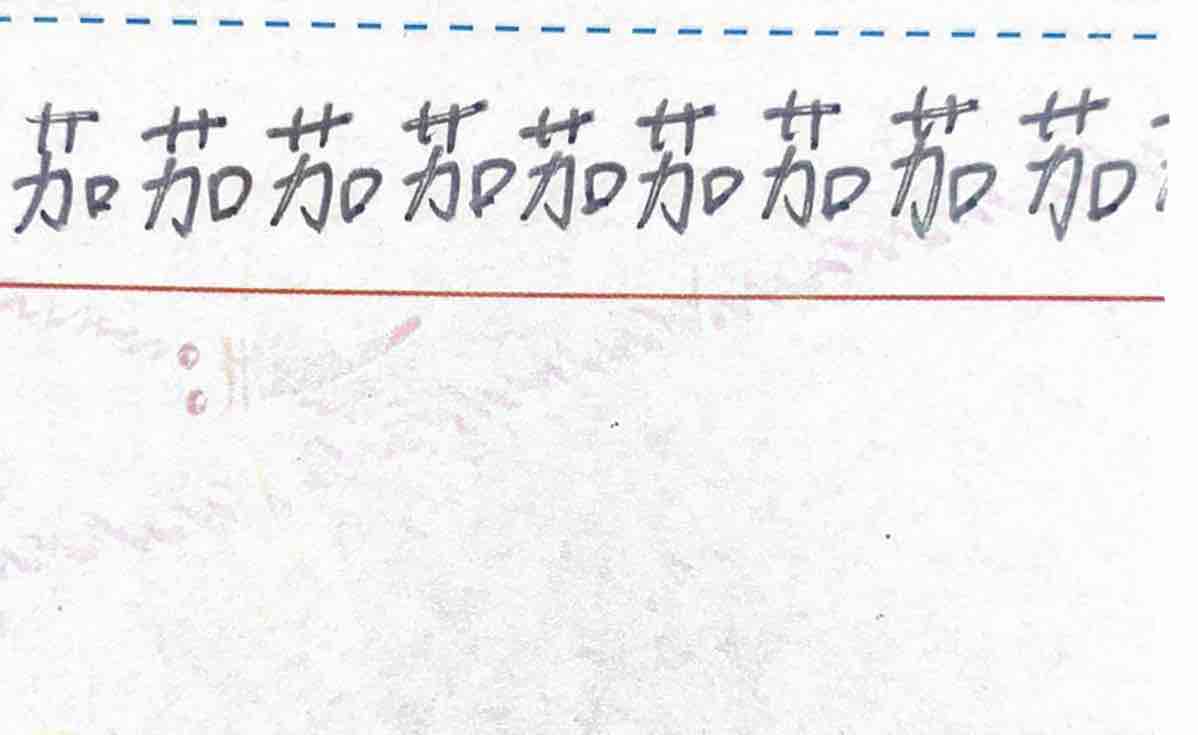 茄茄茄茄茄茄茄茄茄